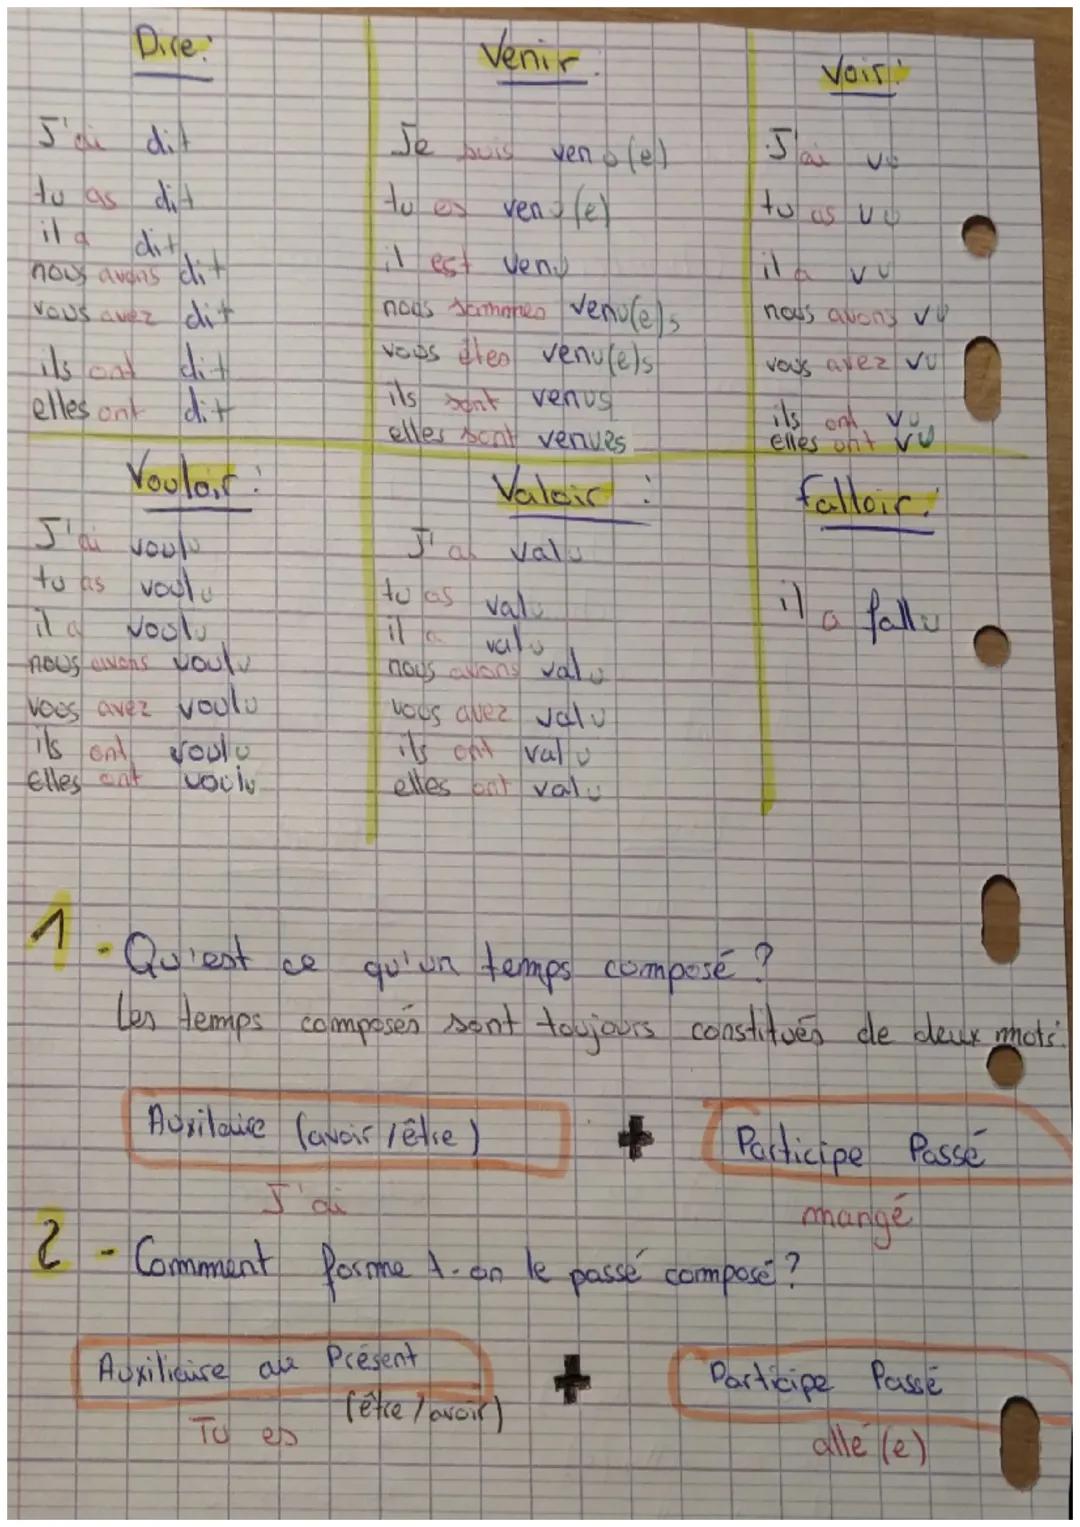 Dire:
J'ai dit
tu as dit
il a dit
nous avons dit
vous avez dit
ils ont dit
elles ont dit
Venir:
Je suis venu(e)
tu es venu(e)
il est venu
nous sommes venu(e)s
vous êtes venu(e)s
ils sont venus
elles sont venues
Voir:
J'ai vu
tu as vu
il a vu
nous avons vu
vous avez vu
ils ont vu
elles ont vu
Vouloir:
J'ai voulu
tu as voulu
il a voulu
nous avons voulu
vous avez voulu
ils ont voulu
elles ont voulu
Valoir:
J'ai valu
tu as valu
il a valu
nous avons valu
vous avez valu
ils ont valu
elles ont valu
falloir:
il a fallu
1 - Qu'est ce qu'un temps composé ?
Les temps composés sont toujours constitués de deux mots.
Auxilaire (avoir / être) + Participe Passé
J'ai mangé
2 - Comment forme t-on le passé composé ?
Auxiliaire au Présent + Participe Passé
(être / avoir)
Tu es allé (e)